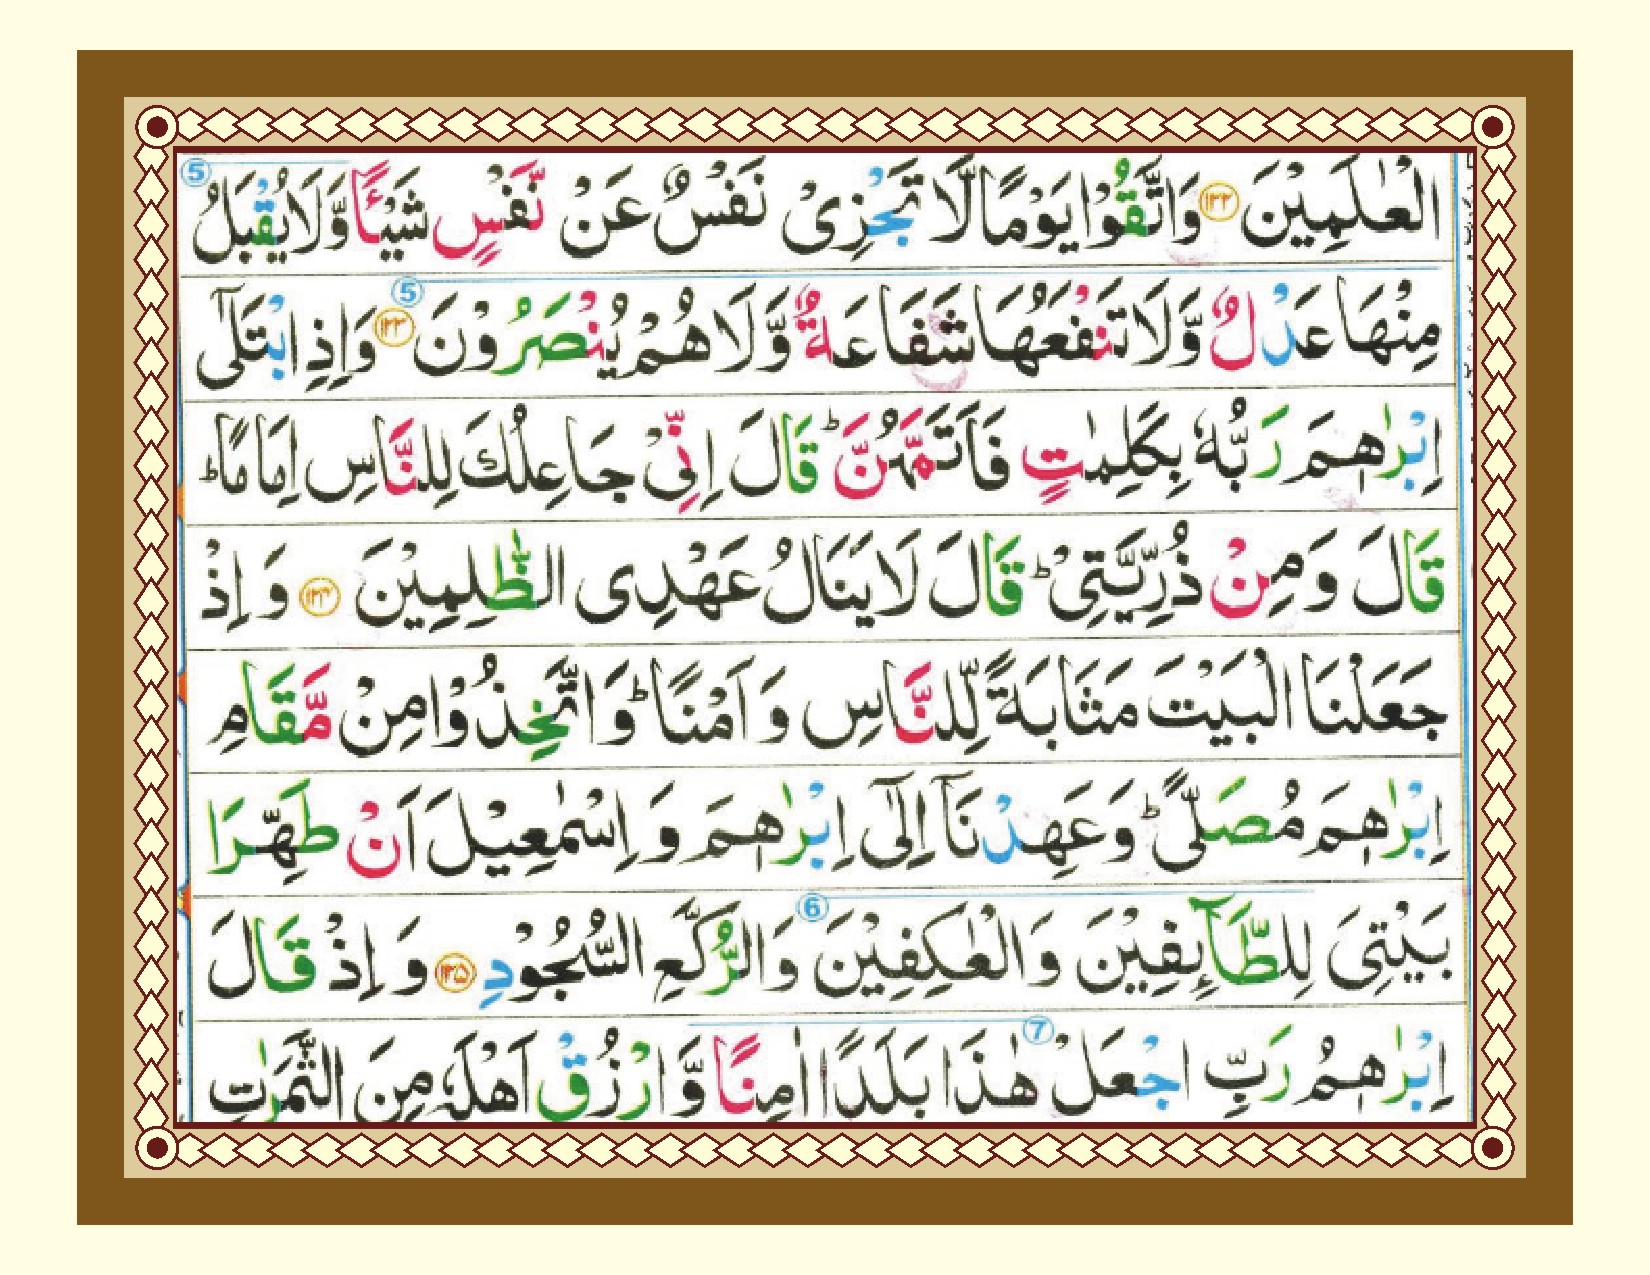 الْعٰلَمِيْنَ ﴿۱۲۲﴾ وَاتَّقُوْا يَوْمًا لَّا تَجْزِىْ نَفْسٌ عَنْ نَّفْسٍ شَيْـًٔا وَّلَا يُقْبَلُ 5
مِنْهَا عَدْلٌ وَّلَا تَنْفَعُهَا شَفَاعَةٌ وَّلَا هُمْ يُنْصَرُوْنَ ﴿۱۲۳﴾ 5 وَاِذِ ابْتَلٰٓى
اِبْرٰهٖمَ رَبُّهٗ بِكَلِمٰتٍ فَاَتَمَّهُنَّ ؕ قَالَ اِنِّىْ جَاعِلُكَ لِلنَّاسِ اِمَامًا ؕ
قَالَ وَمِنْ ذُرِّيَّتِىْ ؕ قَالَ لَا يَنَالُ عَهْدِى الظّٰلِمِيْنَ ﴿۱۲۴﴾ وَاِذْ
جَعَلْنَا الْبَيْتَ مَثَابَةً لِّلنَّاسِ وَاَمْنًا ؕ وَاتَّخِذُوْا مِنْ مَّقَامِ
اِبْرٰهٖمَ مُصَلًّى ؕ وَعَهِدْنَآ اِلٰٓى اِبْرٰهٖمَ وَاِسْمٰعِيْلَ اَنْ طَهِّرَا
بَيْتِىَ لِلطَّآئِفِيْنَ وَالْعٰكِفِيْنَ 6 وَالرُّكَّعِ السُّجُوْدِ ﴿۱۲۵﴾ وَاِذْ قَالَ
اِبْرٰهٖمُ رَبِّ اجْعَلْ 7 هٰذَا بَلَدًا اٰمِنًا وَّارْزُقْ اَهْلَهٗ مِنَ الثَّمَرٰتِ